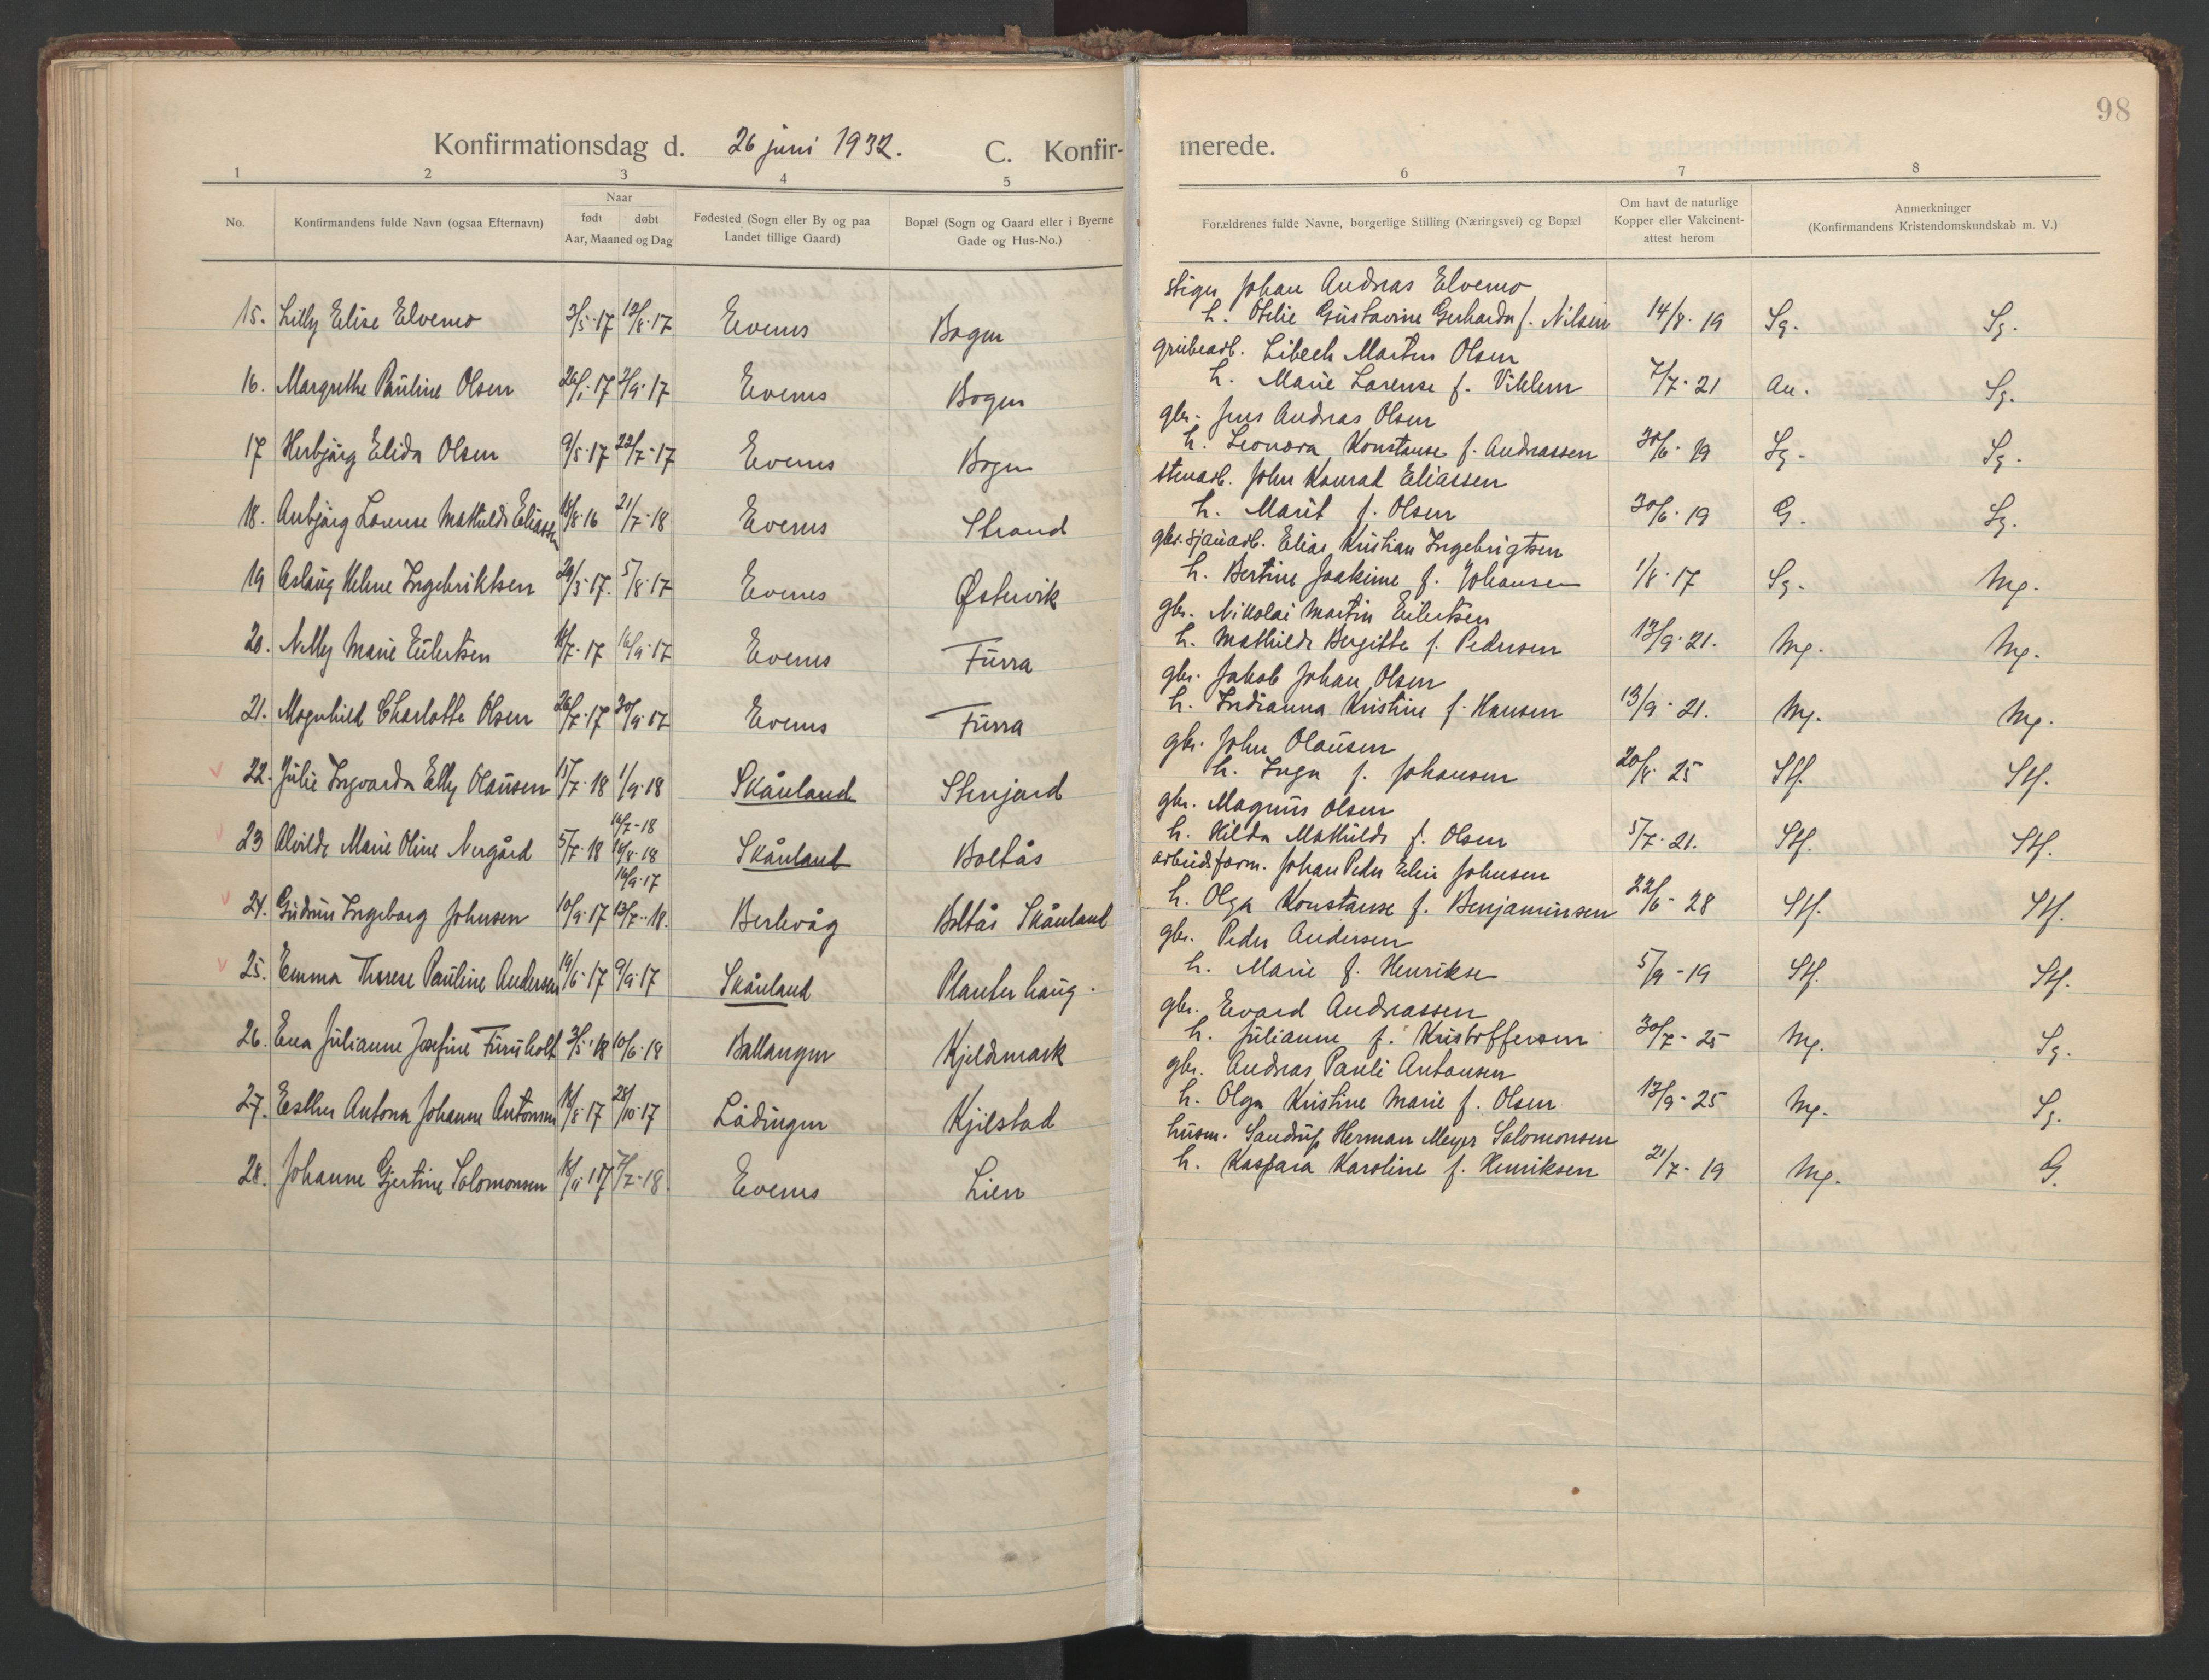 98
Konfirmationsdag d. 26 juni 1932. C. Konfir-
merede.
1 2 3 4 5 6 7 8
No.
Konfirmandens fulde Navn (ogsaa Efternavn)
Naar
født døbt
Aar, Maaned og Dag
Fødested (Sogn eller By og paa
Landet tillige Gaard)
Bopæl (Sogn og Gaard eller i Byerne
Gade og Hus-No.)
Forældrenes fulde Navne, borgerlige Stilling (Næringsvei) og Bopæl
Om havt de naturlige
Kopper eller Vakcinent-
attest herom
Anmerkninger
(Konfirmandens Kristendomskundskab m. V.)
stiger Johan Andreas Elvemo
15. Lilly Elise Elvemo 3/5-17 12/8-17 Evenes Bogen h. Otelie Gustavine Gerharda f. Nilsen 14/8-19 Sg. Sg.
grubearb. Libech Martin Olsen
16. Margrethe Pauline Olsen 2/9-17 Evenes Bogen h. Marie Larense f. Viklem 7/7-21 Sg.
gbr. Jens Andreas Olsen
17 Herbjørg Elida Olsen 9/5-17 22/7-17 Evenes Bogen h. Leonora Konstanse f. Andreassen 30/6-19 Sg. Sg.
stenarb. John Konrad Eliassen
18. Anbjørg Larense Mathilde Eliassen 18/8-16 21/7-18 Evenes Strand h. Marit f. Olsen 30/6-19 G. Sg.
gbr. sjauarb. Elias Kristian Ingebrigtsen
19 Aslaug Helene Ingebriktsen 29/3-17. 5/8-17 Evenes Østervik h. Bertine Joakime f. Johansen 1/8-17 Sg. Mg.
gbr. Nikolai Martin Eilertsen
20. Nelly Marie Eilertsen 18/7-17 16/9-17 Evenes Furra h. Mathilde Bergitte f. Pedersen 13/9-21. Mg. Mg.
gbr. Jakob Johan Olsen
21. Magnhild Charlotte Olsen 26/7-17 30/9-17 Evenes Furra h. Indianna Kristine f. Hansen 13/9-21. Mg. Mg.
gbr. John Olausen
22. Julie Ingvarda Elly Olausen 15/7-18 1/9-18 Skånland Stenjord h. Inga f. Johansen 20/8-25 Stf. Stf.
gbr. Magnus Olsen
14/7-18
23 Alvilde Marie Oline Nergård 5/7-18 18/8-18 Skånland Boltås h. Hilda Mathilde f. Olsen 5/7-21. Stf. Stf.
arbeidsform. Johan Peder Elias Johnsen
16/9-17
24. Gudrun Ingeborg Johnsen 10/9-17 13/7-18. Berlevåg Boltås Skånland h. Olga Konstanse f. Benjaminsen 22/6-28 Stf. Stf.
gbr. Peder Andersen
25. Emma Therese Pauline Andersen 19/6-17 9/9-17 Skånland Planterhaug. h. Marie f. Henriksen 5/9-19 Stf. Stf.
gbr. Evard Andreassen
26. Ena Julianne Josefine Furuholt 3/5-18 10/6-18 Ballangen Kjeldmark h. Julianne f. Kristoffersen 30/7-25 Mg. Sg.
gbr. Andreas Pauli Antonsen
27. Esther Antona Johanne Antonsen 18/8-17 28/10-17 Lødingen Kjilstad h. Olga Kristine Marie f. Olsen 13/9-25 Mg. Sg.
husm. Herman Meyer Salomonsen
28. Johanne Gjertine Salomonsen 7/7-18. Evenes Lien h. Kaspara Karoline f. Henriksen 21/7-19 Mg. G.